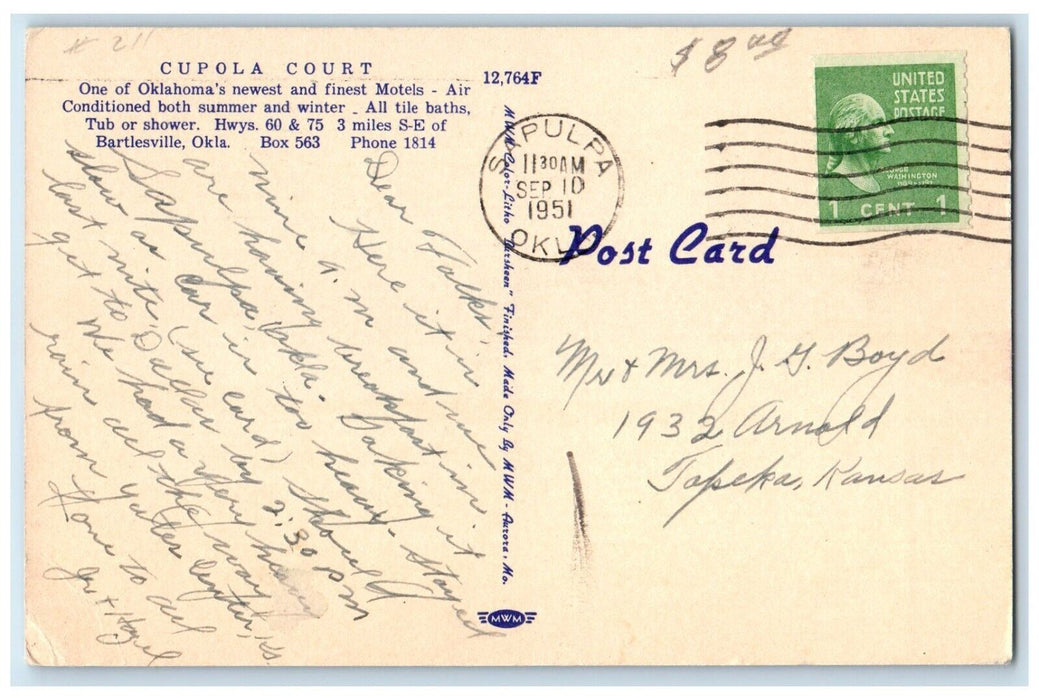 # 211
$8.00
CUPOLA COURT
One of Oklahoma's newest and finest Motels - Air
Conditioned both summer and winter - All tile baths,
Tub or shower. Hwys. 60 & 75 3 miles S-E of
Bartlesville, Okla. Box 563 Phone 1814
12,764F
Dear Folks,
Here it is
nine a.m. and we
are having breakfast in
Sapulpa, Okla. Taking it
slow as car is too heavy. Stayed
last nite (see card) Should
get to Dallas by 2:30 pm
We had a very heavy
rain all the way
from Yates Center, Ks
Love to all
Joe & Hazel
MWM Color-Litho "Larsheen" Finished. Made Only By MWM - Aurora, Mo.
MWM
SAPULPA
11 30 AM
SEP 10
1951
OKLA
UNITED
STATES
POSTAGE
GEORGE
WASHINGTON
1789-1797
1 CENT 1
Post Card
Mr & Mrs. J. G. Boyd
1932 Arnold
Topeka, Kansas